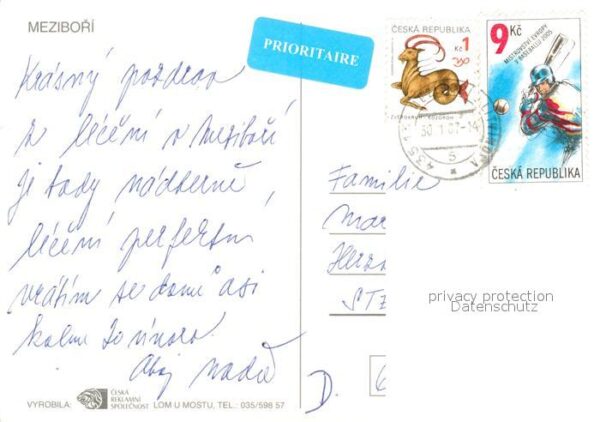 MEZIBOŘÍ
PRIORITAIRE
ČESKÁ REPUBLIKA
1
Kč
ZVĚROKRUH - KOZOROH
9 Kč
MISTROVSTVÍ EVROPY
V BASEBALLU 2005
ČESKÁ REPUBLIKA
30.1.07-14
Krásný pozdrav
z léčení v Meziboří
je tady nádherně,
léčení perfektní
vrátím se domů asi
kolem 20 února.
Ahoj Naďa
Familie
Mar
STE
D.
privacy protection
Datenschutz
VYROBILA:
ČESKÁ
REKLAMNÍ
SPOLEČNOST
LOM U MOSTU, TEL.: 035/598 57